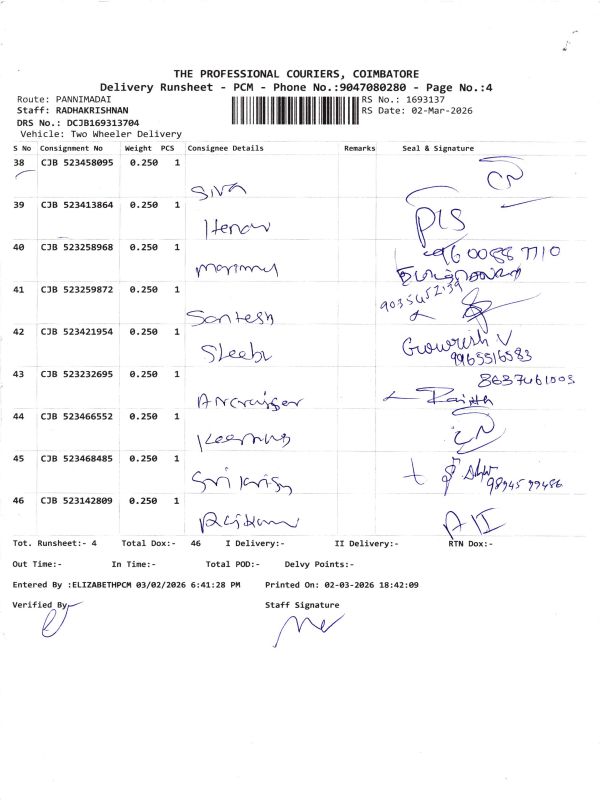 THE PROFESSIONAL COURIERS, COIMBATORE
Delivery Runsheet - PCM - Phone No.:9047080280 - Page No.:4
Route: PANNIMADAI RS No.: 1693137
Staff: RADHAKRISHNAN RS Date: 02-Mar-2026
DRS No.: DCJB169313704
Vehicle: Two Wheeler Delivery
S No Consignment No Weight PCS Consignee Details Remarks Seal & Signature
38 CJB 523458095 0.250 1
Siva
39 CJB 523413864 0.250 1
PLS
40 CJB 523258968 0.250 1
41 CJB 523259872 0.250 1
Santesh
42 CJB 523421954 0.250 1
Gowrish V
9965516583
43 CJB 523232695 0.250 1
44 CJB 523466552 0.250 1
45 CJB 523468485 0.250 1
46 CJB 523142809 0.250 1
Tot. Runsheet:- 4 Total Dox:- 46 I Delivery:- II Delivery:- RTN Dox:-
Out Time:- In Time:- Total POD:- Delvy Points:-
Entered By :ELIZABETHPCM 03/02/2026 6:41:28 PM Printed On: 02-03-2026 18:42:09
Verified By Staff Signature